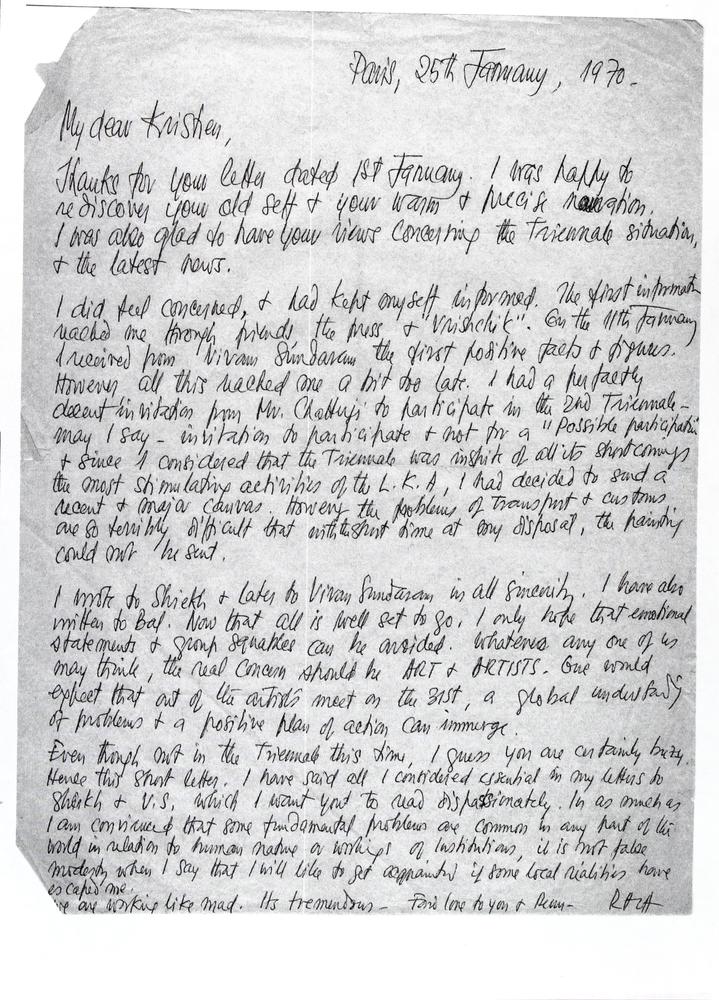 Paris, 25th January, 1970-
My dear Krishen,
Thanks for your letter dated 1st January. I was happy to
rediscover your old self & your warm & precise narration.
I was also glad to have your views concerning the Triennale situation,
& the latest news.
I did feel concerned, & had kept myself informed. The first informati
reached me through friends the press & "Vrishchik". On the 11th January
I received from Vivan Sundaram the first positive facts & figures.
However all this reached me a bit too late. I had a perfectly
decent invitation from Mr. Chatterji to participate in the 2nd Triennale -
may I say - invitation to participate & not for a "Possible participation"
& since I considered that the Triennale was inspite of all its shortcomings
the most stimulating activities of the L.K.A, I had decided to send a
recent & major canvas. However the problems of transport & customs
are so terribly difficult that with the short time at my disposal, the painting
could not be sent.
I wrote to Shiekh & later to Vivan Sundaram in all sincerity. I have also
written to Bal. Now that all is well set to go, I only hope that emotional
statements & group squables can be avoided. Whatever any one of us
may think, the real concern should be ART & ARTISTS. One would
expect that out of the artists meet on the 31st, a global understanding
of problems & a positive plan of action can immerge.
Even though not in the Triennale this time, I guess you are certainly busy.
Hence this short letter. I have said all I considered essential in my letters to
Sheikh & V.S. which I want you to read dispassionately. In as much as
I am convinced that some fundamental problems are common in any part of the
world in relation to human nature or workings of Institutions, it is not false
modesty when I say that I will like to get acquainted if some local realities have
escaped me.
We are working like mad. Its tremendous - love to you & Renu - RAZA